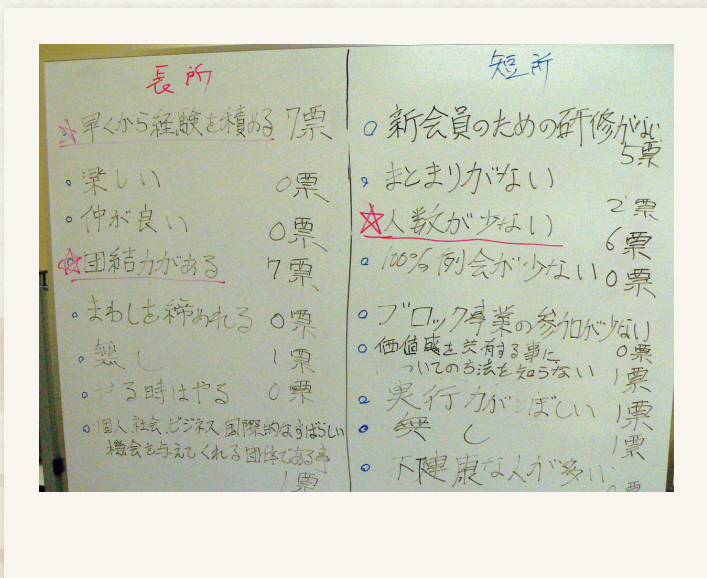 長所
☆早くから経験を積める 7票
楽しい 0票
仲が良い 0票
☆団結力がある 7票
まわしを締めれる 0票
無し 1票
やる時はやる 0票
個人、社会、ビジネス、国際的なすばらしい
機会を与えてくれる団体である事
1票
短所
新会員のための研修がない
5票
まとまりがない
2票
☆人数が少ない
6票
100%例会が少ない 0票
ブロック事業の参加が少ない
0票
価値感を共有する事に
ついての方法を知らない
1票
実行力がとぼしい 1票
無し 1票
不健康な人が多い
0票